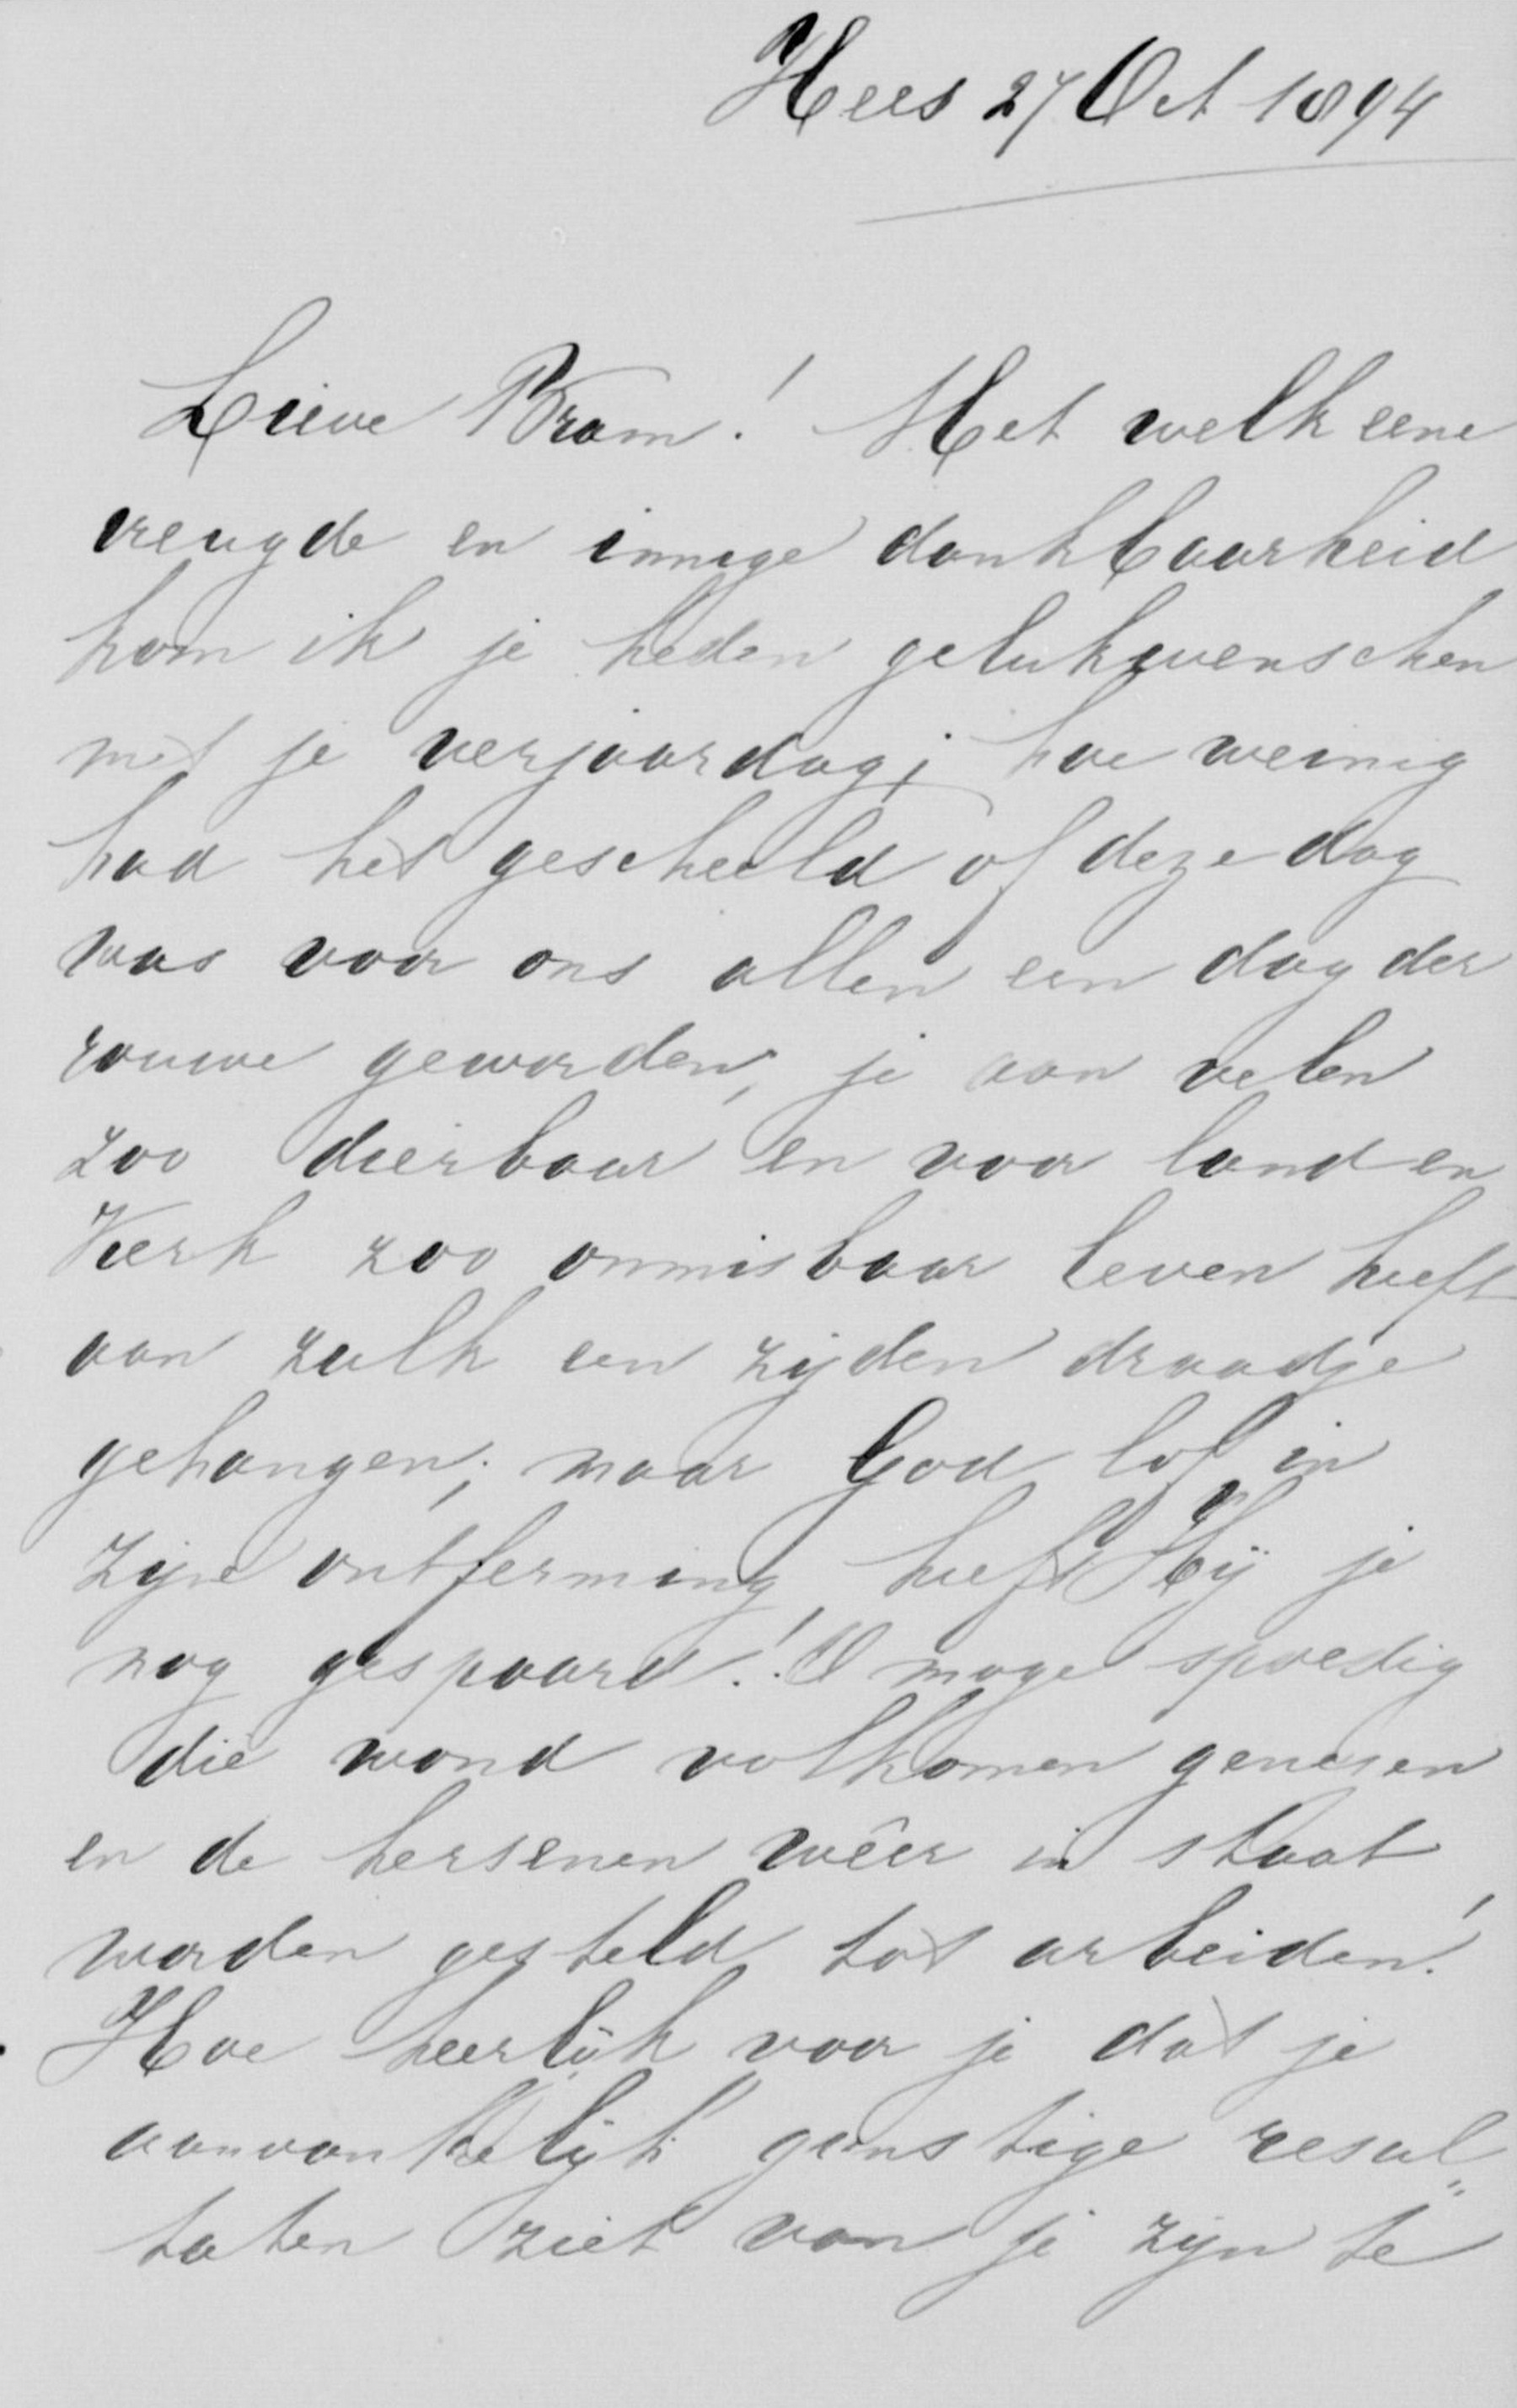 Hees 27 Oct 1894
Lieve Bram! Met welk eene
vreugde en innige dankbaarheid
kom ik je heden gelukwenschen
met je verjaardag; hoe weinig
had het gescheeld of deze dag
was voor ons allen een dag der
rouwe geworden, je aan velen
zoo dierbaar en voor land en
Kerk zoo onmisbaar leven heeft
aan zulk een zijden draadje
gehangen; maar God lof in
zijne ontferming heeft Hij je
nog gespaard! O moge spoedig
die wond volkomen genezen
en de hersenen wêer in staat
worden gesteld tot arbeiden!
Hoe heerlijk voor je dat je
aanvankelijk gunstige resul„
taten ziet van je zijn te